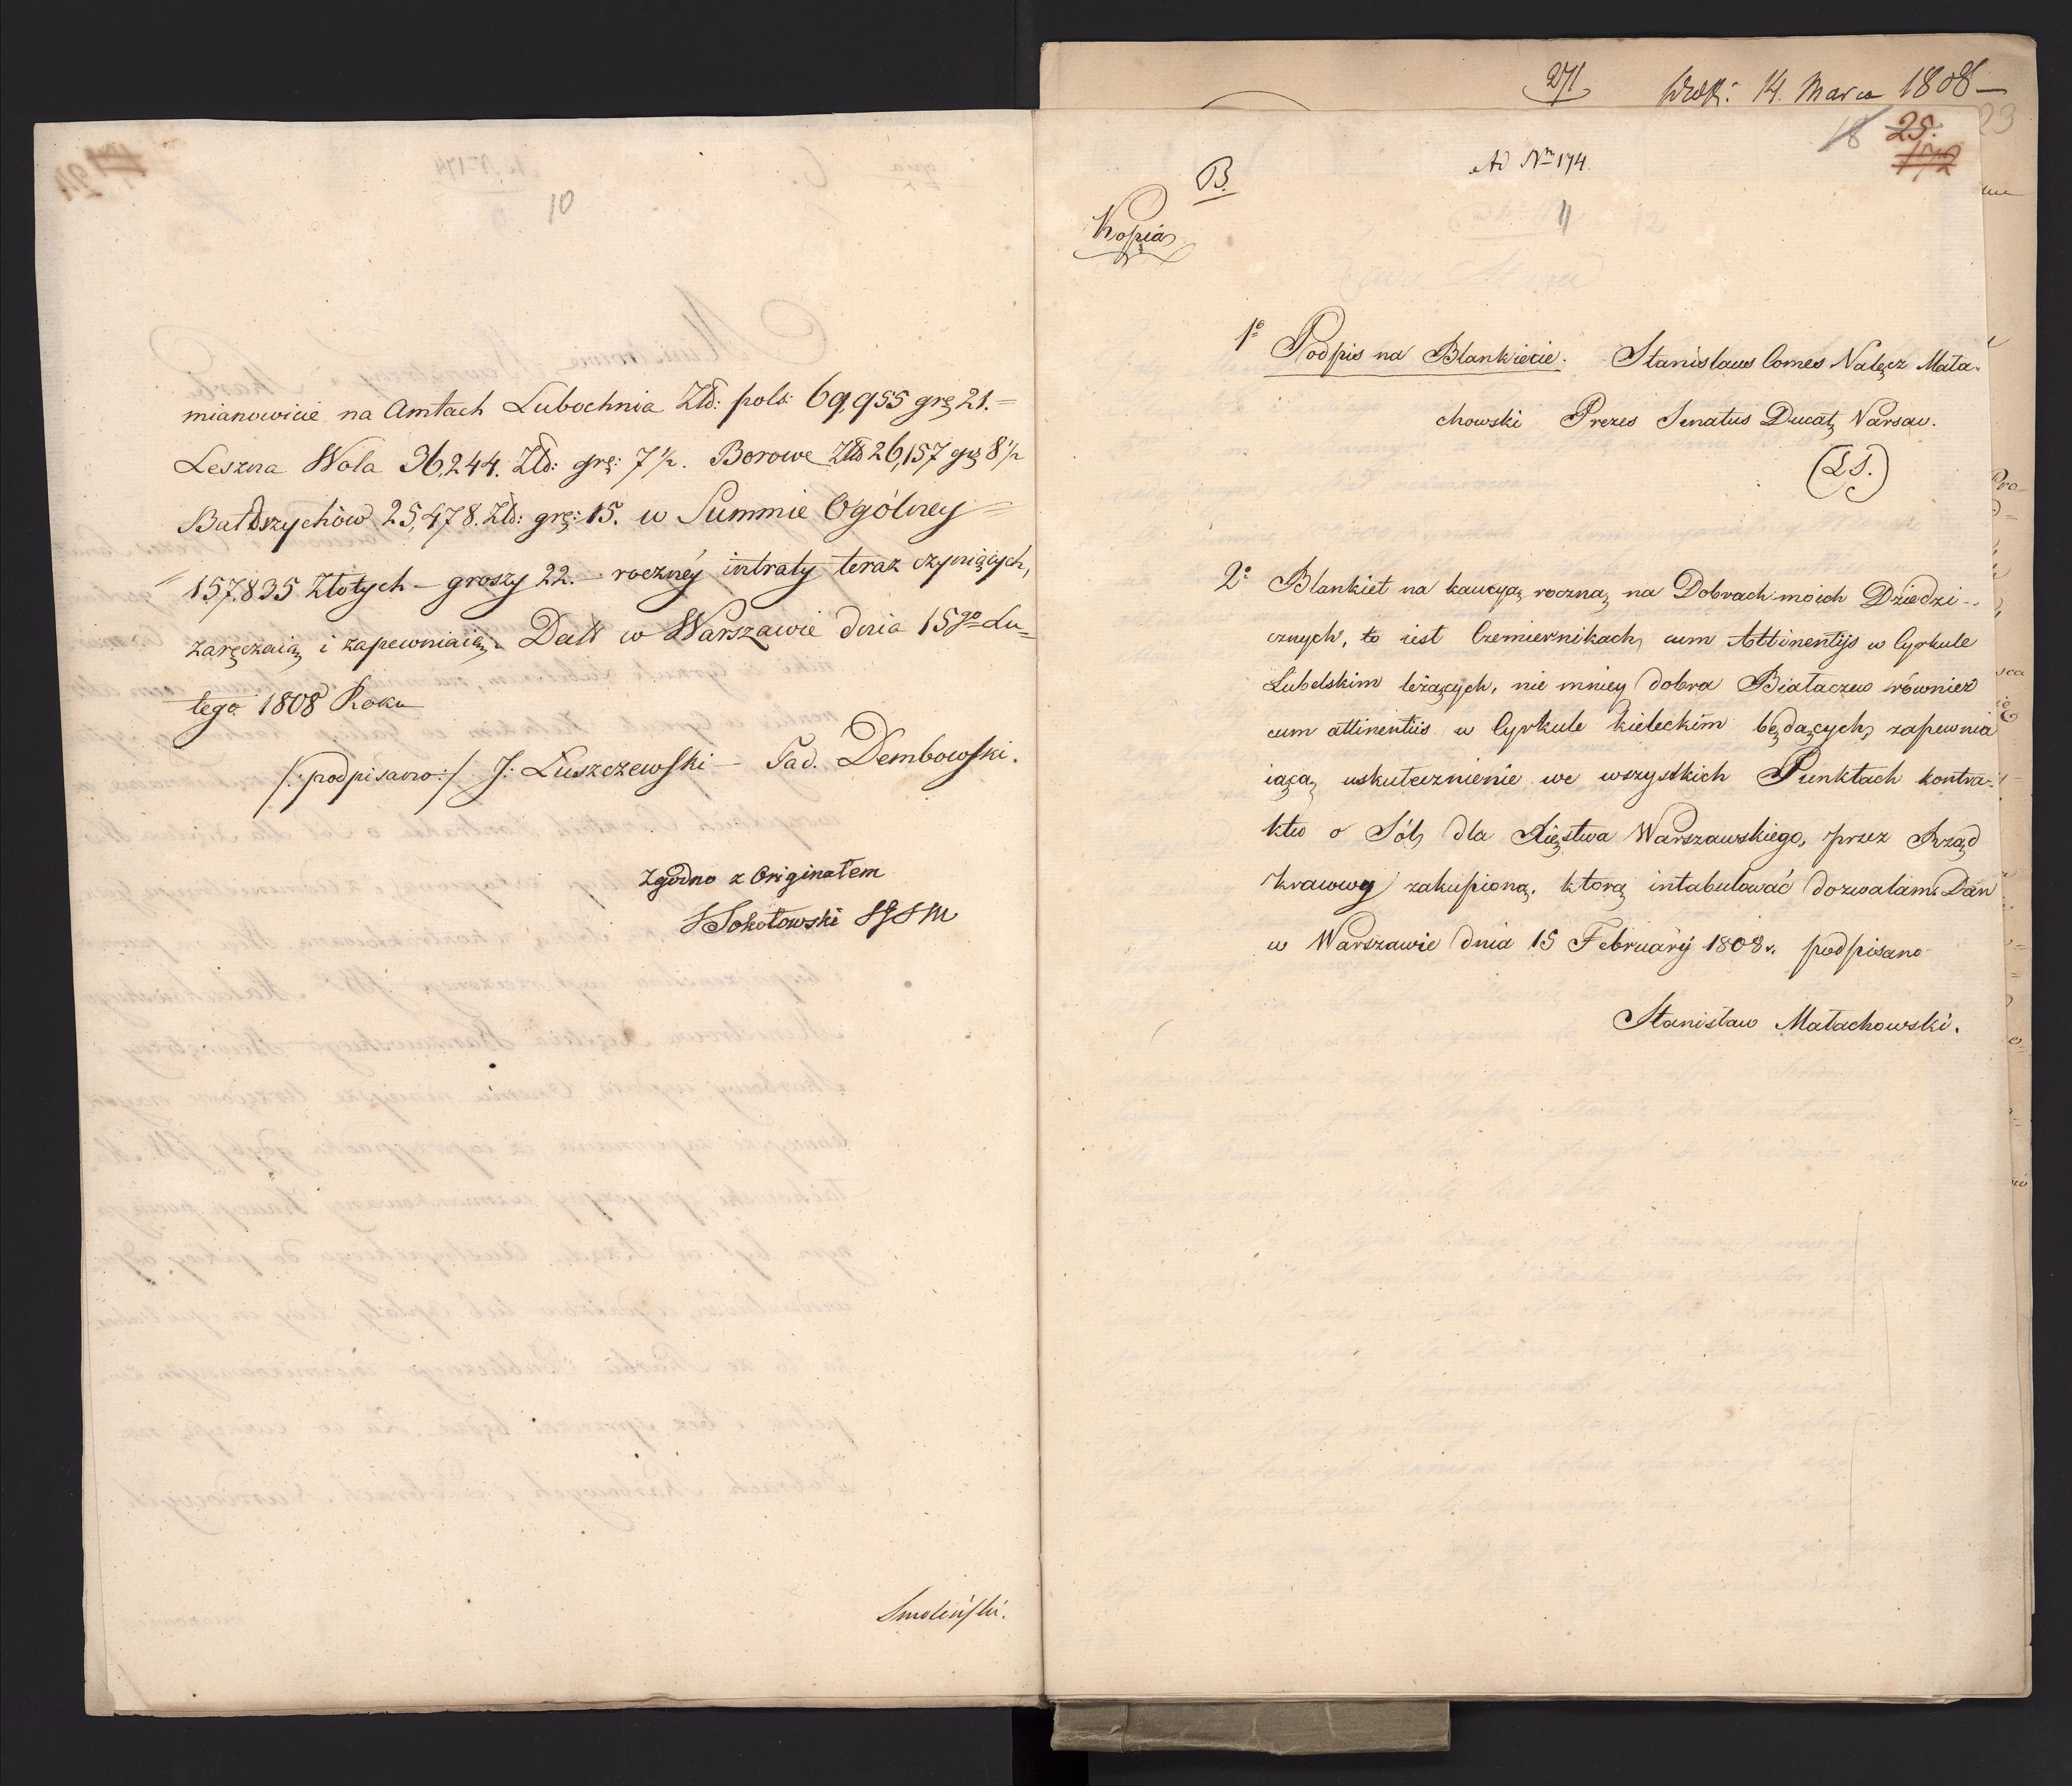 10
mianowicie na Amtach Lubochnia Złł: pols: 69,955 grę 21.=
Leszna Wola 36,244. Złł: grę: 7½. Borowe Złł 26,157 grę 8½
Bałdrzychów 25,478. Złł: grę: 15. w Summie Ogólney =
157.835 Złotych – groszy 22. – roczney intraty teraz czyniących,
zaręczaią i zapewniaią. Datt w Warszawie dnia 15go Lu=
tego 1808 Roku
/: podpisano :/ J: Łuszczewski – Tad. Dembowski.
Zgodno z Originałem
Sokołowski
Smoliński.
271 14. Marca 1808 –
18 25. 23
172
Ad Nrn 174.
B.
11
Kopia
1o Podpis na Blankiecie. Stanislaus Comes Nalęcz Mała-
chowski Prezes Senatus Ducat, Varsav.
(LS.)
2o Blankiet na kaucyą roczną na Dobrach moich Dziedzi-
cznych, to iest Czemiernikach, cum Attinentijs w Cyrkule
Lubelskim leżących, nie mniey dobra Białaczew również
cum attinentiis w Cyrkule kieleckim będących, zapewnia
iącą uskutecznienie we wszystkich Punktach kontra-
ktu o Sól, dla Xięstwa Warszawskiego, przez Rząd
krawowy zakupioną, ktorą intabulować dozwalam. Dan
w Warszawie dnia 15 February 1808 r. podpisano
Stanisław Małachowski.